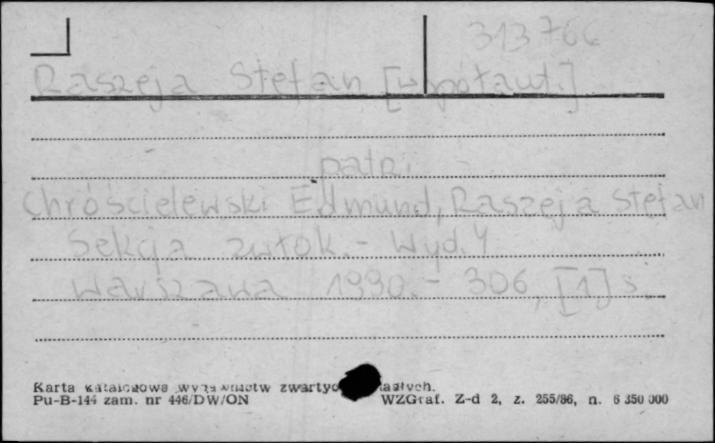 313766
Raszeja Stefan [współaut.]
patr.
Chróścielewski Edmund, Raszeja Stefan
Sekcja zwłok.- Wyd. 4
Warszawa 1990.- 306, [1] s.
Karta katalogowa wydawnictw zwartych
Pu-B-144 zam. nr 446/DW/ON WZGraf. Z-d 2, z. 255/86, n. 6 350 000